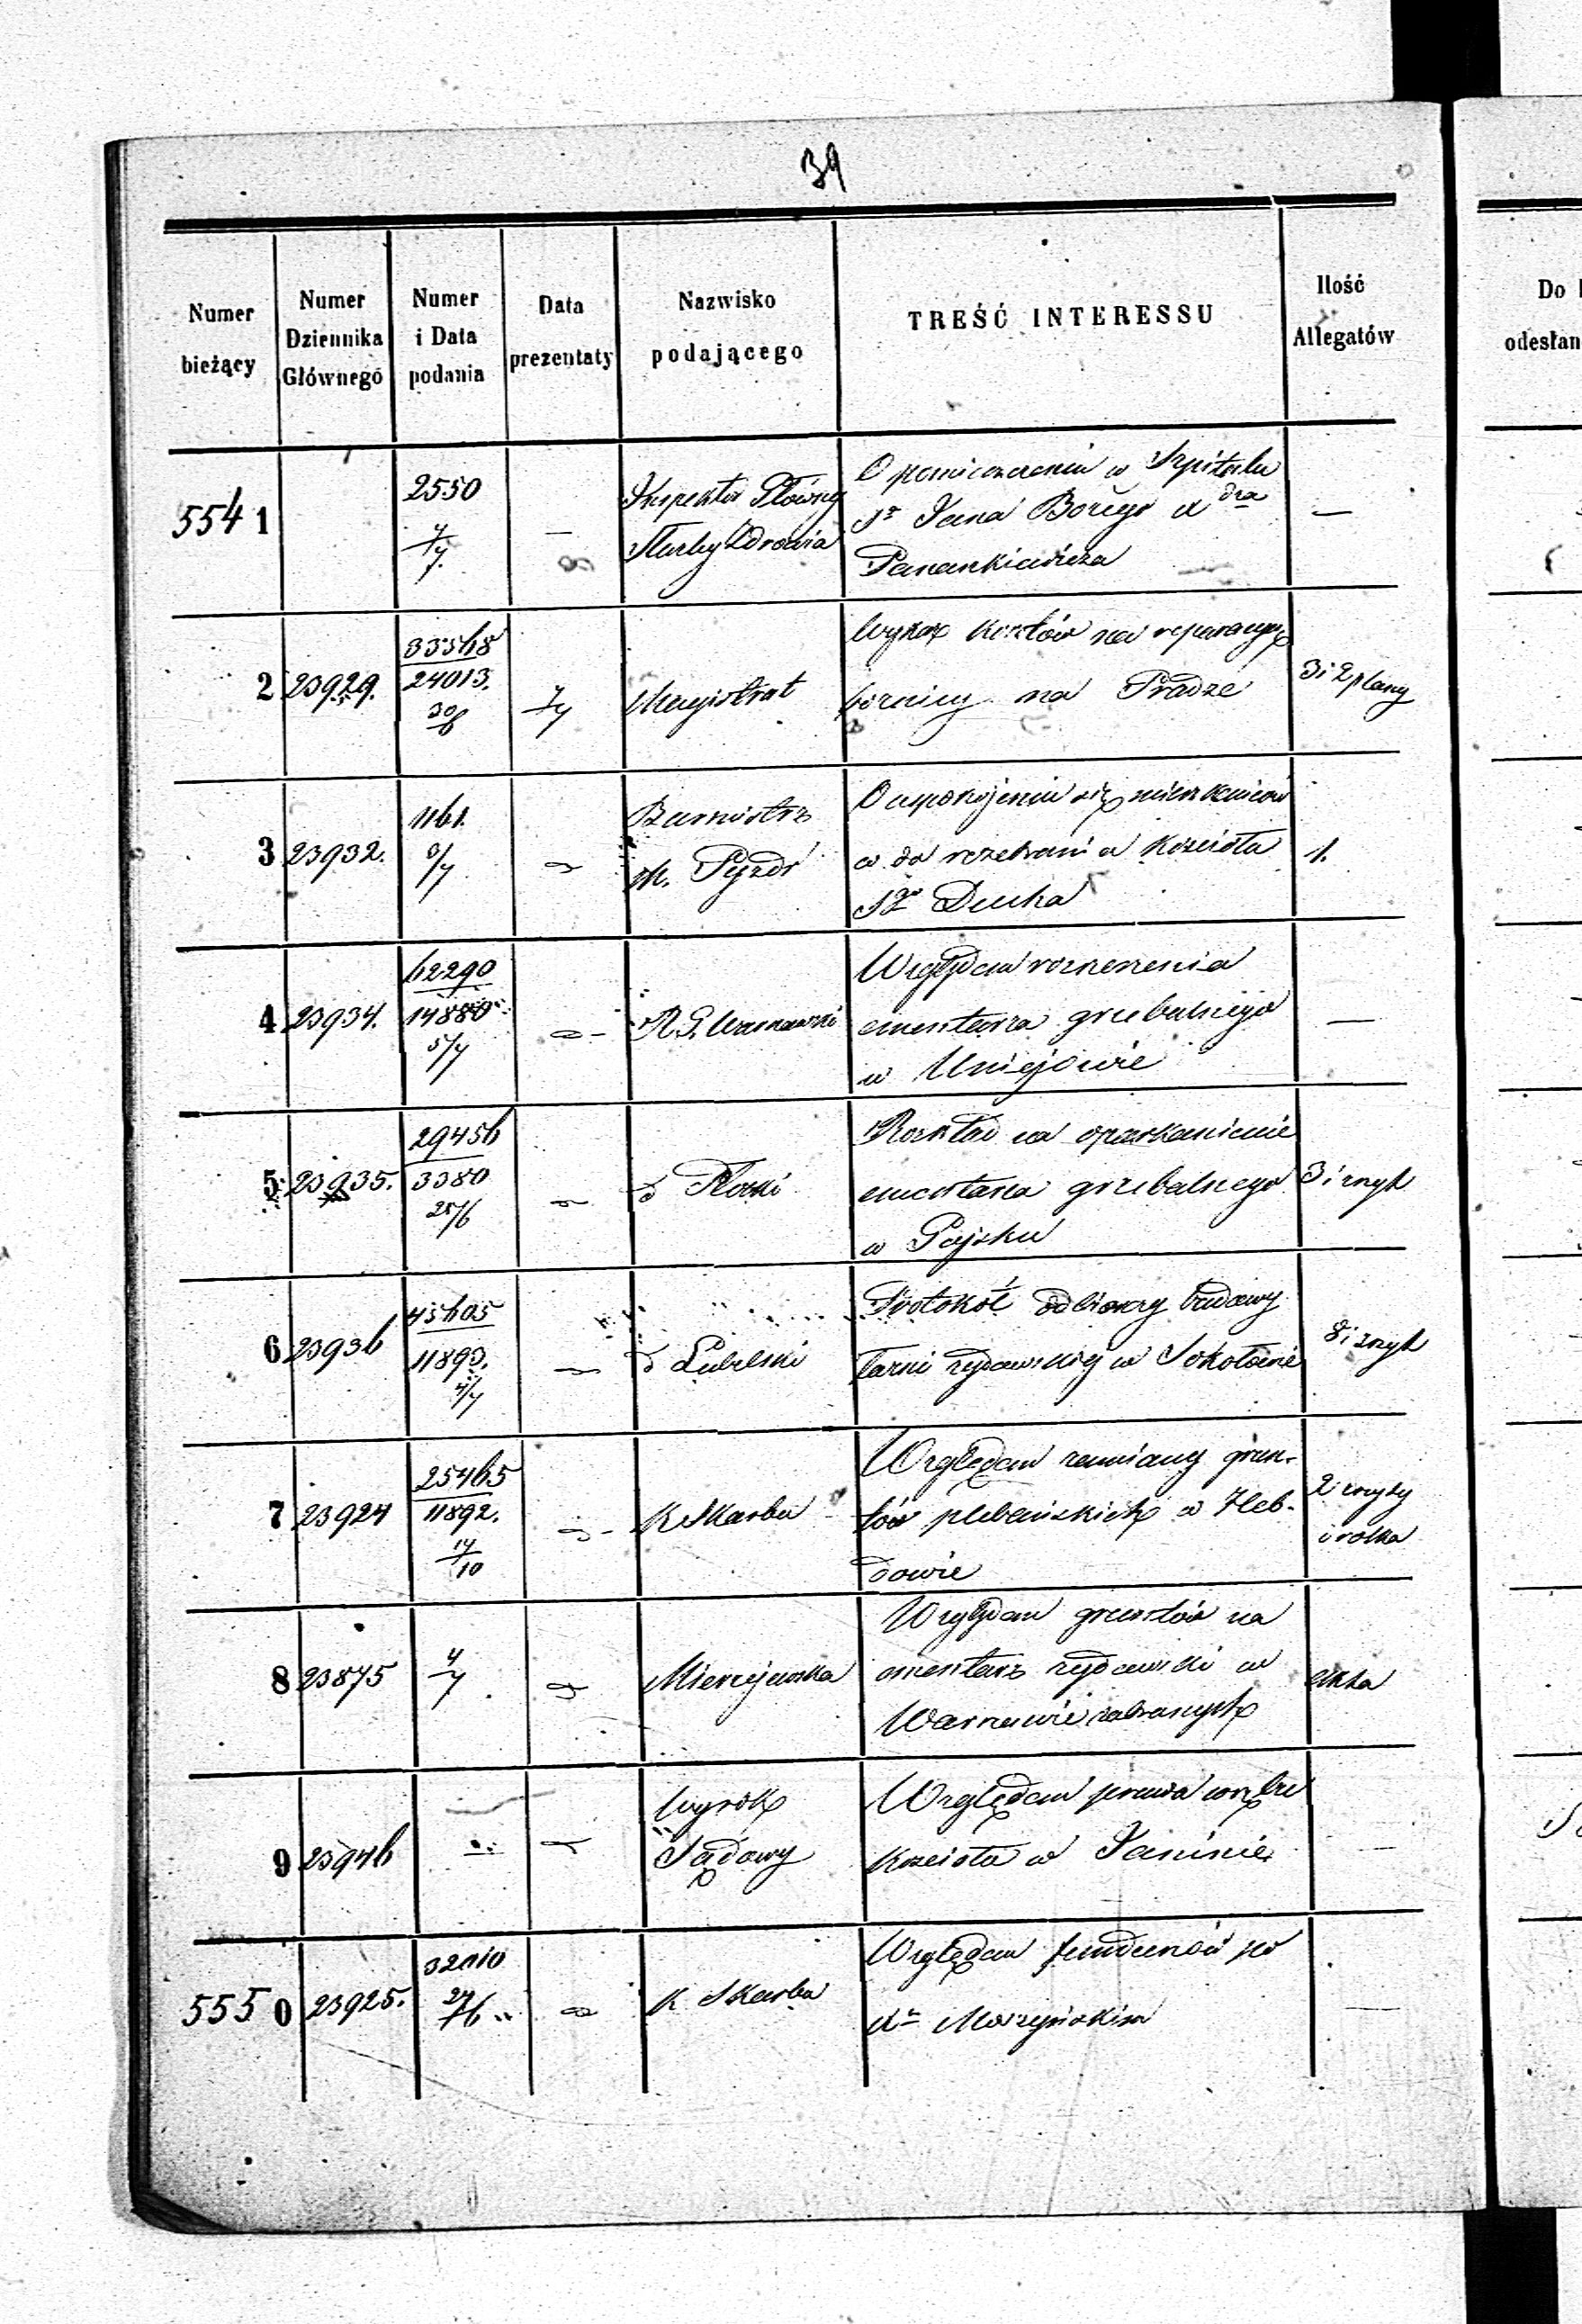 39
Numer bieżący
Numer Dziennika Głównego
Numer i Data podania
Data prezentaty
Nazwisko podającego
TREŚĆ INTERESSU
Ilość Allegatów
Do
odesłan
5541
2550
4/7.
—
Inspektor Główny
Służby Zdrowia
O pomieszczeniu w Szpitalu
Sº Jana Bożego X dra
—
2
23929.
33568
24013.
30/6
7/7
Magistrat
Wykaz kosztów na reparacyę
bożnicy na Pradze
3 i 2 plany
3
23932.
1161.
6/7
Burmistrz
M. Pyzdr
O uspokojeniu się mieszkańców
co do rozebrania Kościoła
Sgo Ducha
1.
4
23934.
62290
14880
5/7
R. G. Warszawski
Względem rozszerzenia
cmentarza grzebalnego
w Uniejowie
—
5
23935.
29456
3380
25/6
d Płocki
Rozkład na oparkanienie
cmentarza grzebalnego
w
3 i zszyt
6
23936
45605
11893.
4/7
d Lubelski
Protokół odbiorczy budowy
łaźni żydowskiej w Sokołowie
8 i zszyt
7
23924
25465
11892.
14/10
K Skarbu
Względem zamiany grun-
tów plebańskich w Chleb-
dowie
2 zszyty
i rolka
8
23875
4/7.
Mierzejewska
Względem gruntów na
cmentarz żydowski w
Warszawie zabranych
akta
9
23946
Wyrok
Sądowy
Względem prawa wręby
Kościoła w Janinie
—
5550
23925.
32010
27/6
K. Skarbu
Względem funduszów po
Xu
—